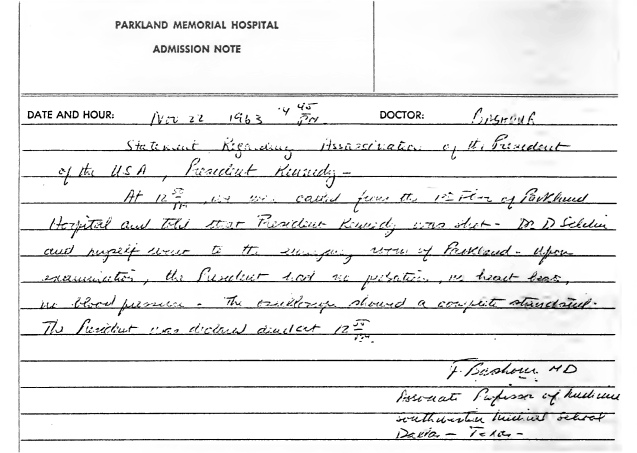 PARKLAND MEMORIAL HOSPITAL
ADMISSION NOTE
DATE AND HOUR: Nov 22 1963 4 45 PM DOCTOR: BASHOUR
Statement Regarding Assassination of the President
of the USA, President Kennedy –
At 12 we were called from the 1st Floor of Parkland
Hospital and told that President Kennedy was shot – Dr D Seldin
and myself went to the emergency room of Parkland – Upon
examination, the President had no pulsation, no heart beat,
no blood pressure – The oscilloscope showed a complete standstill.
The President was declared dead at 12
F Bashour MD
Associate Professor of Medicine
Southwestern Medical School
Dallas – Texas –